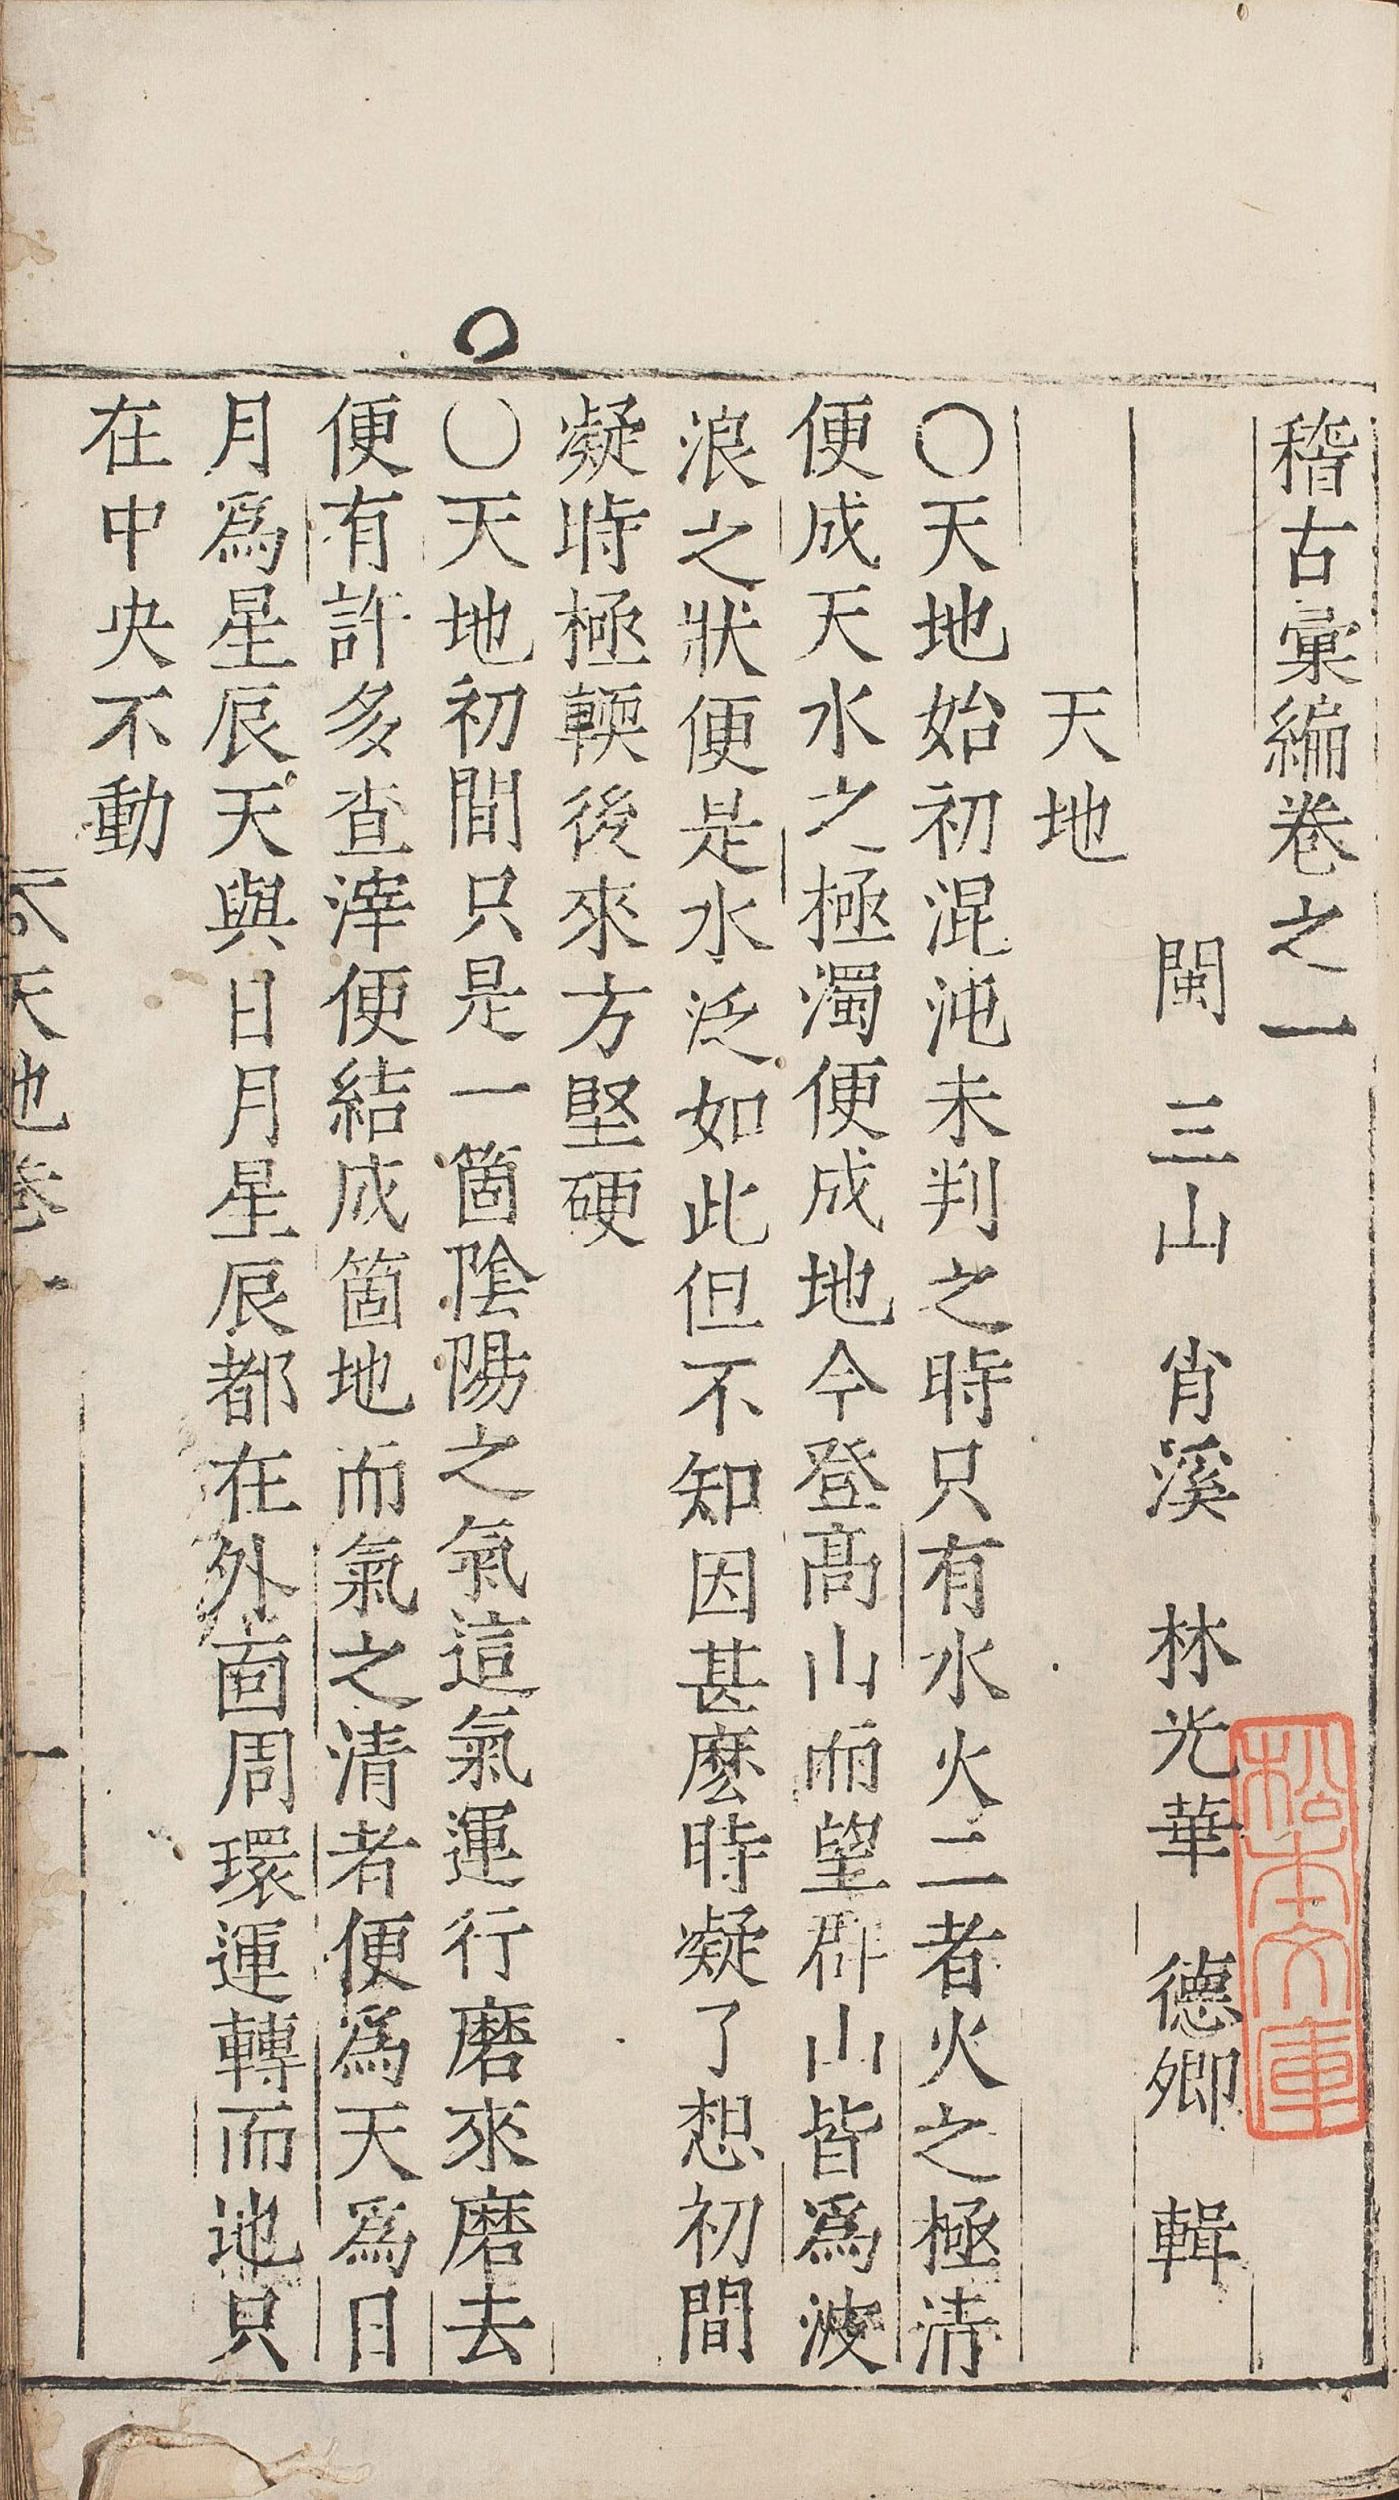 稽古彙編卷之一
閩 三山 肖溪 林光華 德卿 輯
天地
〇天地始初混沌未判之時只有水火二者火之極清
便成天水之極濁便成地今登高山而望群山皆爲波
浪之狀便是水泛如此但不知因甚麽時凝了想初間
凝時極輭後來方堅硬
〇天地初間只是一箇陰陽之氣這氣運行磨來磨去
便有許多查滓便結成箇地而氣之清者便爲天爲日
月爲星辰天與日月星辰都在外面周環運轉而地只
在中央不動
天地卷一
一
松本文庫